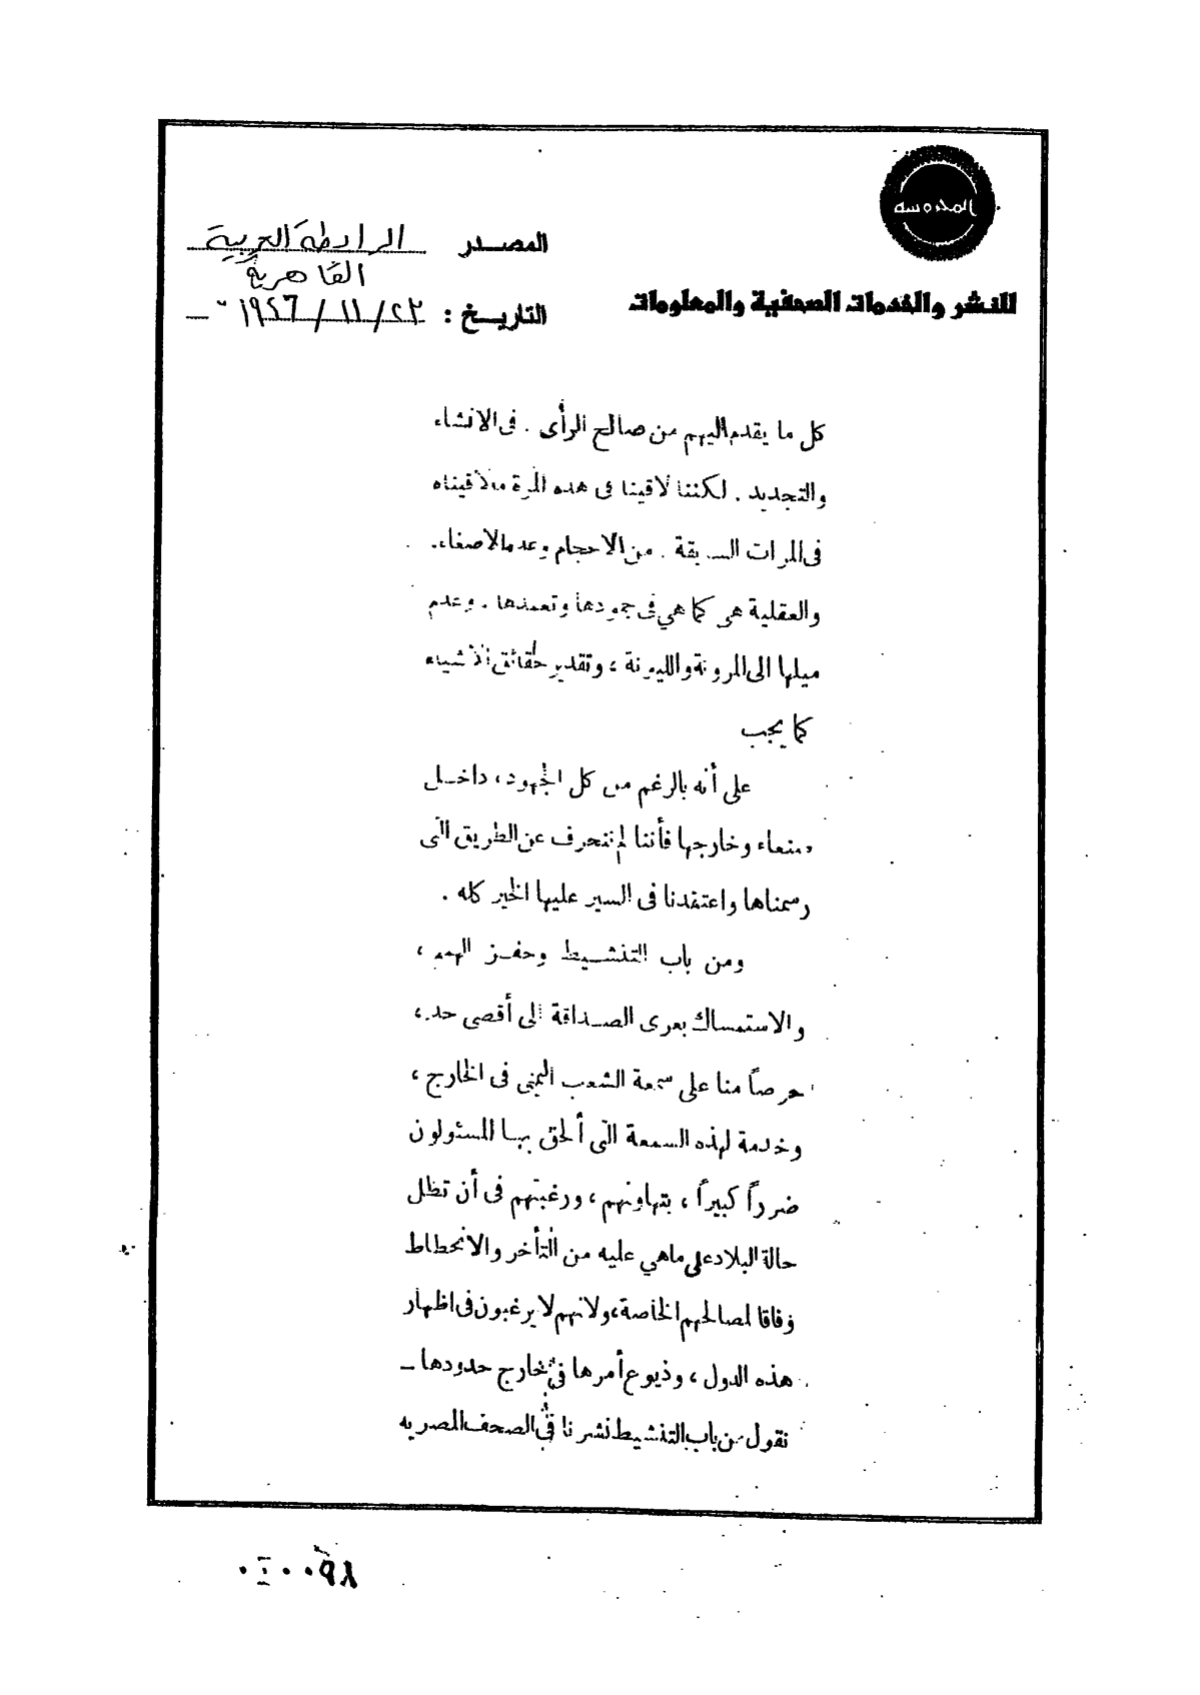 المحروسة
المصدر الرابطة العربية
القاهرية
للنشر والخدمات الصحفية والمعلومات
التاريخ : ٢٣/١١/١٩٤٦
كل ما يقدم اليهم من صالح الرأى . فى الانشاء
والتجديد . لكننا لاقينا فى هذه المرة مالاقيناه
فى المرات السابقة . من الاحجام وعدم الاصغاء .
والعقلية هى كما هي فى جمودها وتعمدها . وعدم
ميلها الى المرونة والليونة ، وتقدير حقائق الأشياء
كما يجب
على أنه بالرغم من كل الجهود ، داخل
صنعاء وخارجها فأننا لم ننحرف عن الطريق التى
رسمناها واعتقدنا فى السير عليها الخير كله .
ومن باب التنشيط وحفز الهمم ،
والاستمساك بعرى الصداقة الى أقصى حد ،
حرصاً منا على سمعة الشعب اليمنى فى الخارج ،
وخدمة لهذه السمعة التى ألحق بها المسئولون
ضرراً كبيراً ، بتهاونهم ، ورغبتهم فى أن تظل
حالة البلاد على ماهي عليه من التأخر والانحطاط
وفاقا لمصالحهم الخاصة ، ولانهم لا يرغبون فى اظهار
هذه الدول ، وذيوع أمرها فى خارج حدودها _
نقول من باب التنشيط نشرنا فى الصحف المصريه